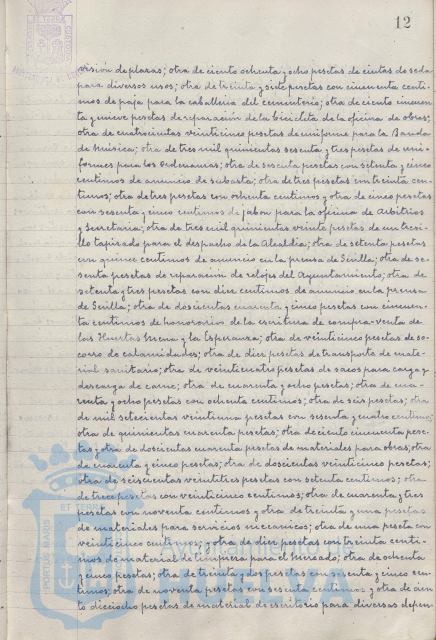 12
visión de plazas; otra de ciento ochenta y ocho pesetas de cintas de seda
para diversos usos; otra de treinta y siete pesetas con cincuenta centi-
mos de paja para la caballeria del cementerio; otra de ciento cincuen-
ta y nueve pesetas de reparación de la bicicleta de la oficina de obras;
otra de cuatrocientas veinticinco pesetas de uniforme para la Banda
de Música; otra de tres mil quinientas sesenta y tres pesetas de uni-
formes para los ordenanzas; otra de sesenta pesetas con setenta y cinco
centimos de anuncio de subasta; otra de tres pesetas con treinta cen-
timos; otra de tres pesetas con ochenta centimos y otra de cinco pesetas
con sesenta y cinco centimos de jabon para la oficina de Arbitrios
y Secretaria; otra de tres mil quinientas veinte pesetas de un tresi-
llo tapizado para el despacho de la Alcaldia; otra de setenta pesetas
con quince centimos de anuncio en la prensa de Sevilla; otra de se-
senta pesetas de reparación de relojes del Ayuntamiento; otra de
setenta y tres pesetas con diez centimos de anuncio en la prensa
de Sevilla; otra de doscientas cuarenta y cinco pesetas con cincuen-
ta centimos de honorarios de la escritura de compra-venta de
las Huertas Mena y la Esperanza; otra de veinticinco pesetas de so-
corro de calamidades; otra de diez pesetas de transporte de mate-
rial sanitario; otra de veinticuatro pesetas de sacos para carga y
descarga de carne; otra de cuarenta y ocho pesetas; otra de cua-
renta y ocho pesetas con ochenta centimos; otra de seis pesetas; otra
de mil setecientas veintiuna pesetas con sesenta y cuatro centimos;
otra de quinientas cuarenta pesetas; otra de ciento cincuenta pese-
tas y otra de doscientas cuarenta pesetas de materiales para obras; otra
de cuarenta y cinco pesetas; otra de doscientas veinticinco pesetas;
otra de seiscientas veintitres pesetas con setenta centimos; otra
de trece pesetas con veinticinco centimos; otra de cuarenta y tres
pesetas con noventa centimos y otra de treinta y una pesetas
de materiales para servicios mecanicos; otra de una peseta con
veinticinco centimos; y otra de diez pesetas con treinta centi-
mos de material de limpieza para el Mercado; otra de ochenta
y cinco pesetas; otra de treinta y dos pesetas con sesenta y cinco cen-
timos; otra de noventa pesetas con sesenta centimos y otra de cien-
to dieciocho pesetas de material de escritorio para diversas depen-